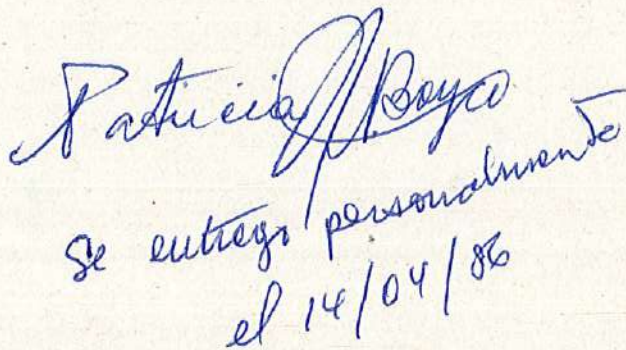 Patricia J. Boyco
se entregó personalmente
el 14/04/86